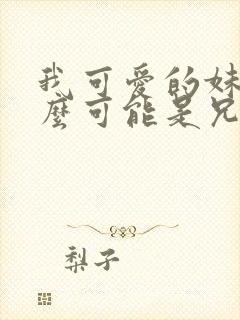 我可愛的妹
麼可能是兄
梨子